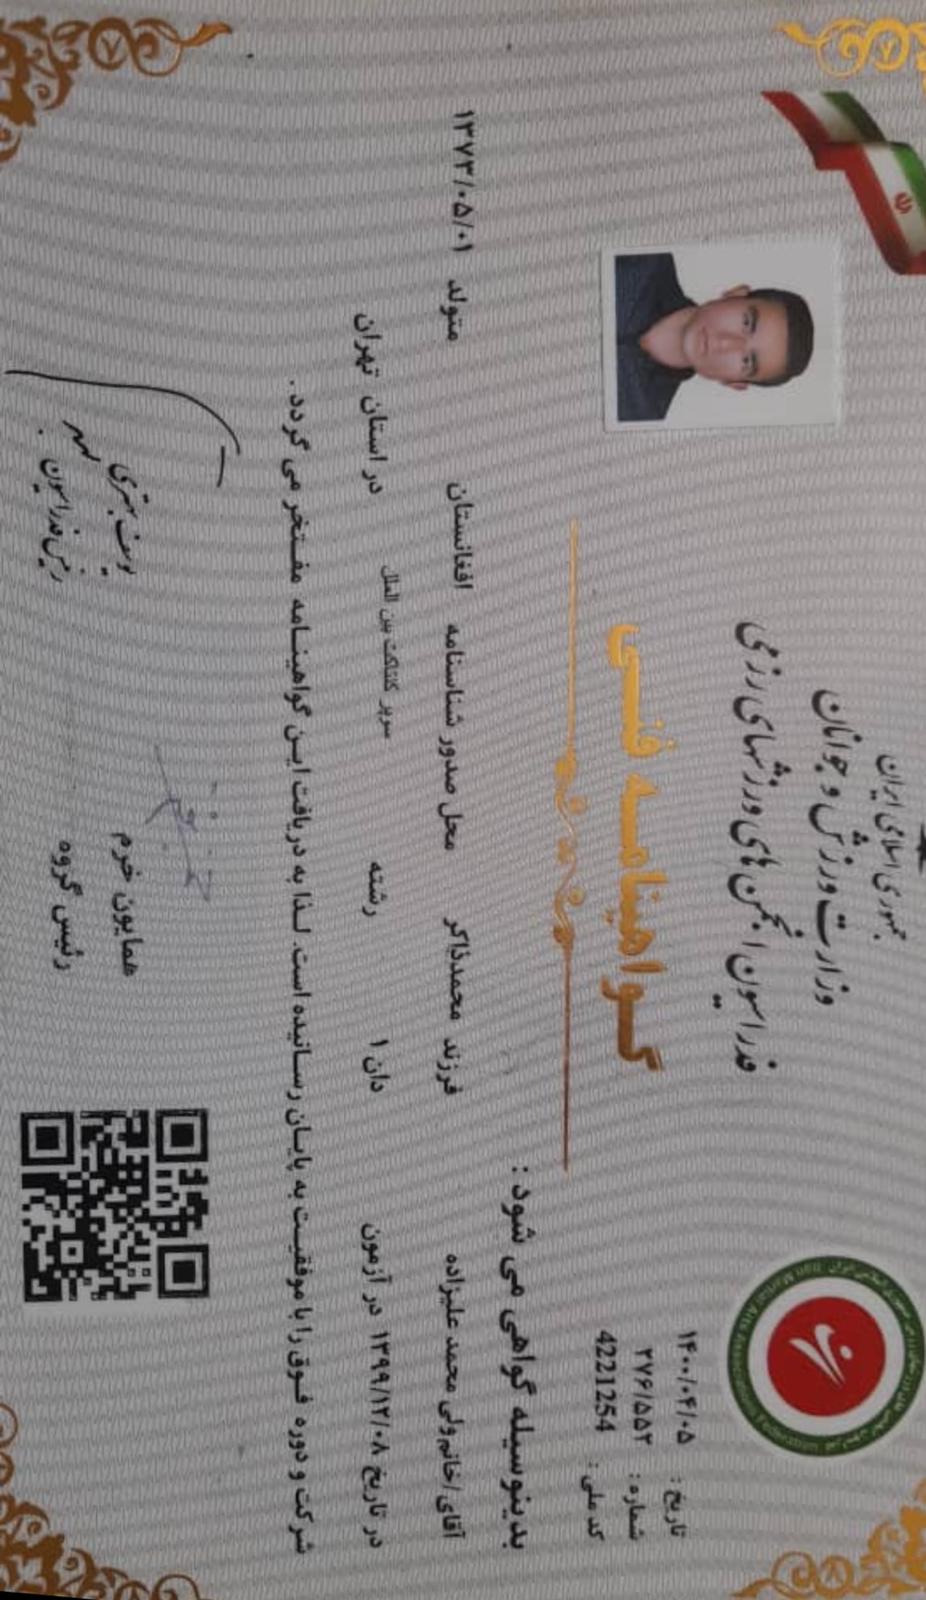 جمهوری اسلامی ایران
وزارت ورزش و جوانان
فدراسیون انجمن های ورزشهای رزمی
گواهینامه فنی
تاریخ : ۱۴۰۰/۰۴/۰۵
شماره : ۲۷۶/۵۵۲
کد ملی : 4221254
بدینوسیله گواهی می شود :
آقای/خانم ولی محمد علیزاده فرزند محمدذاکر محل صدور شناسنامه افغانستان متولد ۱۳۷۳/۰۵/۰۱
در تاریخ ۱۳۹۹/۱۲/۰۸ در آزمون دان ۱ رشته سوپر کنتاکت بین الملل در استان تهران
شرکت و دوره فوق را با موفقیت به پایان رسانیده است. لذا به دریافت این گواهینامه مفتخر می گردد.
همایون خرم
رئیس گروه
رئیس فدراسیون